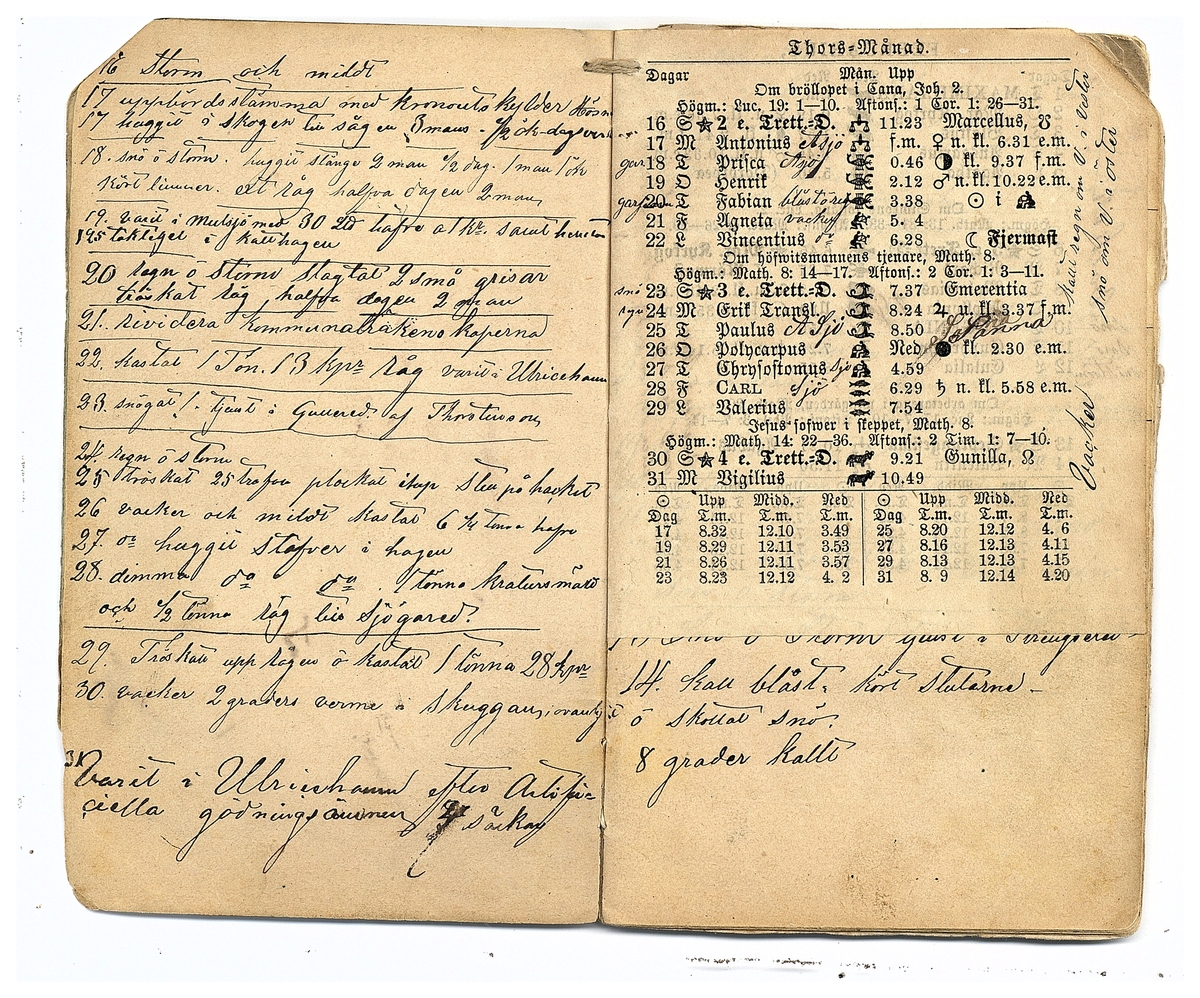 16 Storm och mildt
17 uppbördsstämma med Kronoutskylder
17 huggit i skogen til sågen 3 mans - ½ ök-dagsverk
18. snö ö storm. huggit stänge 2 man ½ dag. 1 man 1 ök
kört timmer. ett råg halfva dagen 2 man
19. varit i Mulsjö med 30 Ltd hafre a 1 kr. samt
195 i Katthagen
20 regn ö storm slagtat 2 små grisar
tröskat råg, halfva dagen 2 man
21. rividera Kommunalräkenskaperna
22. kastat 1 Ton. 13 kpr råg varit i Ulricehamn
23. snögat. tjenst i Gullered af Thorstensson
24 regn ö storm
25 tröskat 25 trafva plockat ihop sten på hacket
26 vacker och mildt kastat 6 ½ tönna hafre
27. oa huggit stafver i hagen
28. dimma da da. 1 tönna
och ½ tönna råg til Sjögared.
29. Tröskat upp rågen ö kastat 1 tönna 28 kpr
30. vacker 2 graders verme i skuggan, ovanlig
31 Varit i Ulricehamn efter Artifi=
ciella gödningsämnen 4 säckar
Thors=Månad.
Dagar Mån. Upp
Om bröllopet i Cana, Joh. 2.
Högm.: Luc. 19: 1—10. Aftons.: 1 Cor. 1: 26—31.
16 S ★ 2 e. Trett.=D. 11.23 Marcellus, ☋
17 M Antonius A sjö f.m. ♀ n. kl. 6.31 e.m.
18 T Prisca A sjö 0.46 ◑ kl. 9.37 f.m.
19 O Henrik 2.12 ♂ n. kl. 10.22 e.m.
20 T Fabian 3.38 ☉ i ♒
21 F Agneta vacker 5. 4
22 L Vincentius 6.28 ☾ Fjermast
Om höfwitsmannens tjenare, Math. 8.
Högm.: Math. 8: 14—17. Aftons.: 2 Cor. 1: 3—11.
snö 23 S ★ 3 e. Trett.=D. 7.37 Emerentia
24 M Erik Transl. 8.24 ♃ n. kl. 3.37 f.m.
25 T Paulus A Sjö 8.50
26 O Polycarpus Ned ● kl. 2.30 e.m.
27 T Chrysostomus sjö 4.59
28 F CARL sjö 6.29 ♄ n. kl. 5.58 e.m.
29 L Valerius 7.54
Jesus sofwer i skeppet, Math. 8.
Högm.: Math. 14: 22—36. Aftons.: 2 Tim. 1: 7—10.
30 S ★ 4 e. Trett.=D. 9.21 Gunilla, ☊
31 M Vigilius 10.49
kallt regn om V. i vester
snö om V. i öster
Vacker
☉ Upp Midd. Ned ☉ Upp Midd. Ned
Dag T.m. T.m. T.m. Dag T.m. T.m. T.m.
17 8.32 12.10 3.49 25 8.20 12.12 4. 6
19 8.29 12.11 3.53 27 8.16 12.13 4.11
21 8.26 12.11 3.57 29 8.13 12.13 4.15
23 8.23 12.12 4. 2 31 8. 9 12.14 4.20
14. kall blåst. kört stutarne -
ö skottat snö.
8 grader kallt